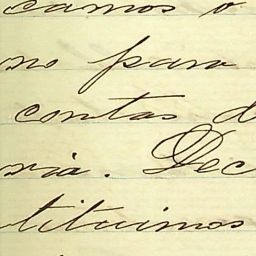 camos o
no para
contas d
ria. Dec
tituimos